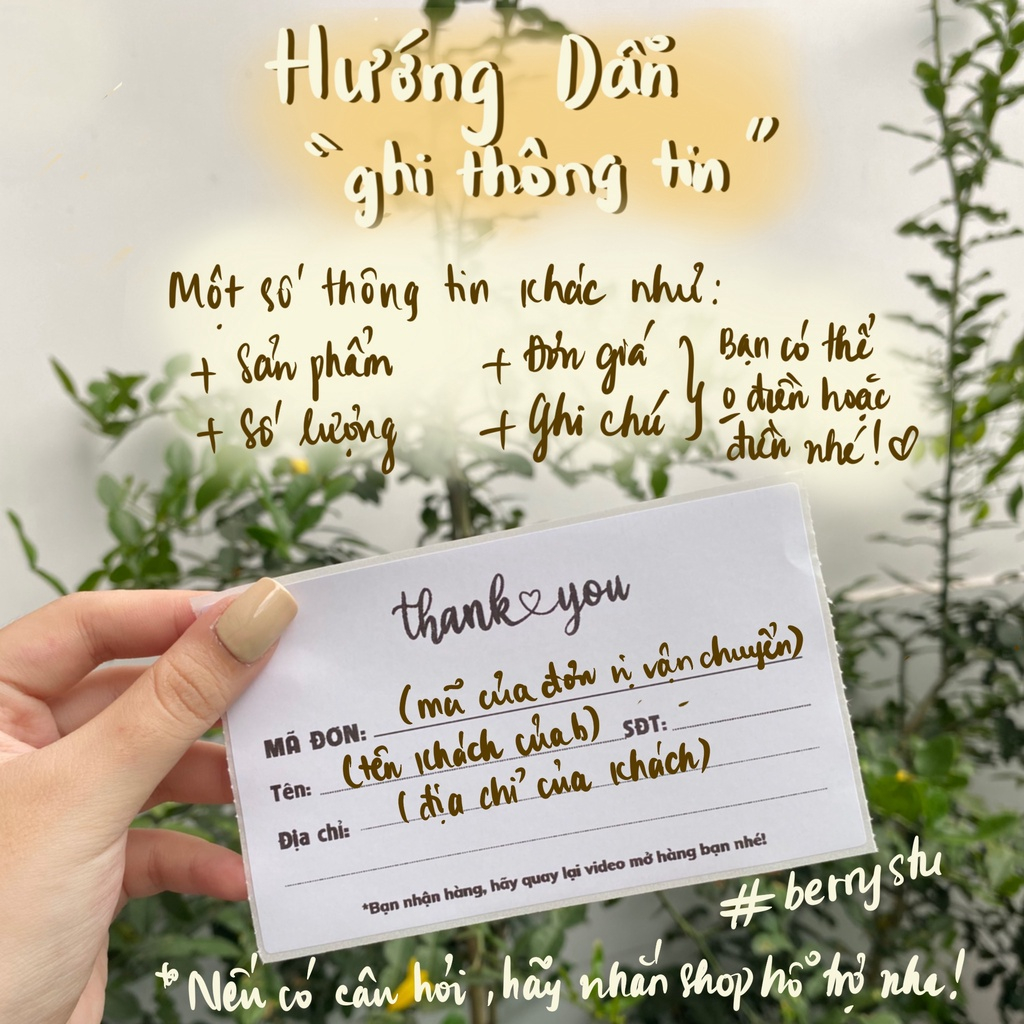 Hướng Dẫn
"ghi thông tin"
Một số thông tin khác như:
+ Sản phẩm
+ Số lượng
+ Đơn giá
+ Ghi chú
Bạn có thể
o điền hoặc
điền nhé! ♡
thank you
MÃ ĐƠN: (mã của đơn vị vận chuyển)
Tên: (tên khách của b) SĐT:
Địa chỉ: (địa chỉ của khách)
*Bạn nhận hàng, hãy quay lại video mở hàng bạn nhé!
#berrystu
* Nếu có câu hỏi, hãy nhắn shop hỗ trợ nha!